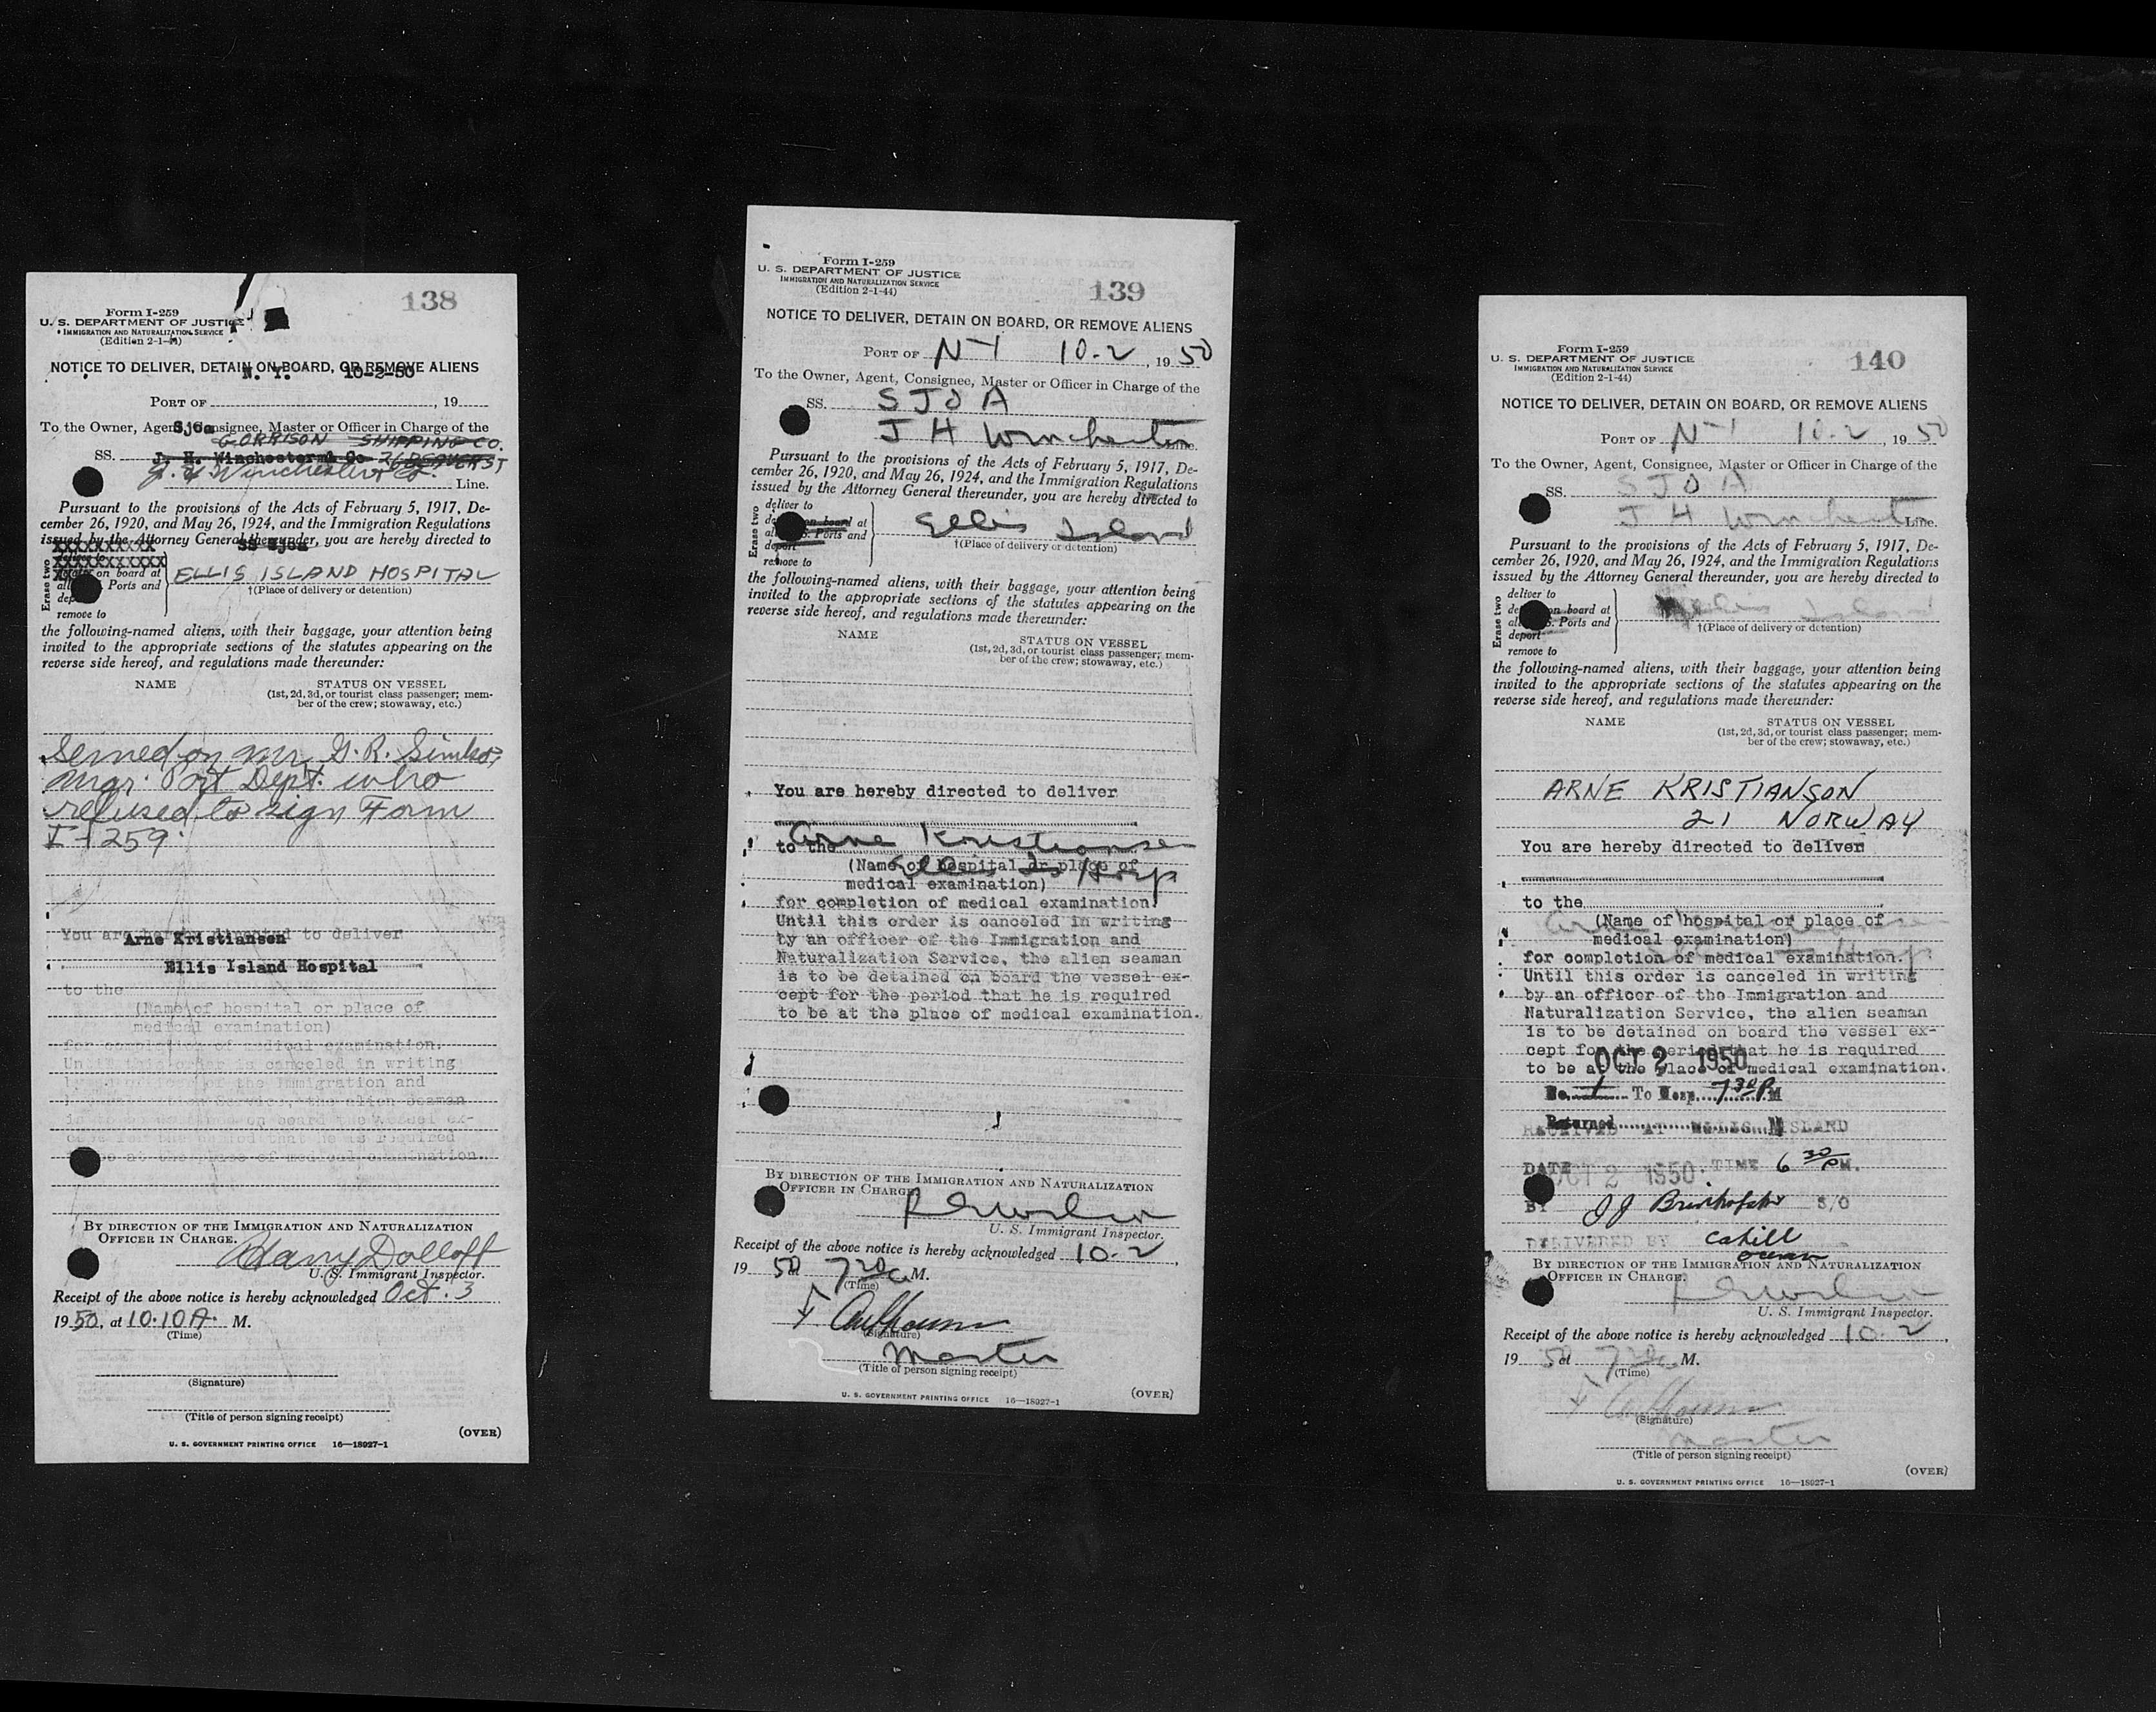 138
Form I-259
U. S. DEPARTMENT OF JUSTICE
IMMIGRATION AND NATURALIZATION SERVICE
(Edition 2-1-44)
NOTICE TO DELIVER, DETAIN ON BOARD, OR REMOVE ALIENS
N. Y. 10-2-50
PORT OF , 19
To the Owner, Agent, Consignee, Master or Officer in Charge of the
Sjoa
GORRISON SHIPPING CO.
SS. J. H. Winchester & Co 26 BEAVER ST
J. H. Winchester & Co. Line.
Pursuant to the provisions of the Acts of February 5, 1917, De-
cember 26, 1920, and May 26, 1924, and the Immigration Regulations
issued by the Attorney General thereunder, you are hereby directed to
SS Sjoa
Erase two
deliver to
detain on board at
all U. S. Ports and
deport
remove to
ELLIS ISLAND HOSPITAL
†(Place of delivery or detention)
the following-named aliens, with their baggage, your attention being
invited to the appropriate sections of the statutes appearing on the
reverse side hereof, and regulations made thereunder:
NAME STATUS ON VESSEL
(1st, 2d, 3d, or tourist class passenger; mem-
ber of the crew; stowaway, etc.)
Served on Mr. G. R.
Mgr. Port Dept. who
refused to sign Form
I-259.
You are hereby directed to deliver
Arne Kristiansen
Ellis Island Hospital
to the
(Name of hospital or place of
medical examination)
for completion of medical examination.
Until this order is canceled in writing
by an officer of the Immigration and
Naturalization Service, the alien seaman
is to be detained on board the vessel ex-
cept for the period that he is required
to be at the place of medical examination.
BY DIRECTION OF THE IMMIGRATION AND NATURALIZATION
OFFICER IN CHARGE.
Harry Dolloff
U. S. Immigrant Inspector.
Receipt of the above notice is hereby acknowledged Oct. 3
19 50, at 10:10 A. M.
(Time)
(Signature)
(Title of person signing receipt)
(OVER)
U. S. GOVERNMENT PRINTING OFFICE 16—18927-1
139
Form I-259
U. S. DEPARTMENT OF JUSTICE
IMMIGRATION AND NATURALIZATION SERVICE
(Edition 2-1-44)
NOTICE TO DELIVER, DETAIN ON BOARD, OR REMOVE ALIENS
PORT OF N Y 10-2, 19 50
To the Owner, Agent, Consignee, Master or Officer in Charge of the
SS. SJOA
J H Winchester Line.
Pursuant to the provisions of the Acts of February 5, 1917, De-
cember 26, 1920, and May 26, 1924, and the Immigration Regulations
issued by the Attorney General thereunder, you are hereby directed to
Erase two
deliver to
detain on board at
all U. S. Ports and
deport
remove to
Ellis Island
†(Place of delivery or detention)
the following-named aliens, with their baggage, your attention being
invited to the appropriate sections of the statutes appearing on the
reverse side hereof, and regulations made thereunder:
NAME STATUS ON VESSEL
(1st, 2d, 3d, or tourist class passenger; mem-
ber of the crew; stowaway, etc.)
You are hereby directed to deliver
Arne Kristiansen
to the
Ellis Is Hosp
(Name of hospital or place of
medical examination)
for completion of medical examination.
Until this order is canceled in writing
by an officer of the Immigration and
Naturalization Service, the alien seaman
is to be detained on board the vessel ex-
cept for the period that he is required
to be at the place of medical examination.
BY DIRECTION OF THE IMMIGRATION AND NATURALIZATION
OFFICER IN CHARGE.
U. S. Immigrant Inspector.
Receipt of the above notice is hereby acknowledged 10-2,
19 50 at 7 30 a M.
(Time)
(Signature)
Master
(Title of person signing receipt)
(OVER)
U. S. GOVERNMENT PRINTING OFFICE 16—18927-1
140
Form I-259
U. S. DEPARTMENT OF JUSTICE
IMMIGRATION AND NATURALIZATION SERVICE
(Edition 2-1-44)
NOTICE TO DELIVER, DETAIN ON BOARD, OR REMOVE ALIENS
PORT OF N Y 10-2, 19 50
To the Owner, Agent, Consignee, Master or Officer in Charge of the
SS. SJOA
J H Winchester Line.
Pursuant to the provisions of the Acts of February 5, 1917, De-
cember 26, 1920, and May 26, 1924, and the Immigration Regulations
issued by the Attorney General thereunder, you are hereby directed to
Erase two
deliver to
detain on board at
all U. S. Ports and
deport
remove to
Ellis Island
†(Place of delivery or detention)
the following-named aliens, with their baggage, your attention being
invited to the appropriate sections of the statutes appearing on the
reverse side hereof, and regulations made thereunder:
NAME STATUS ON VESSEL
(1st, 2d, 3d, or tourist class passenger; mem-
ber of the crew; stowaway, etc.)
ARNE KRISTIANSON
21 NORWAY
You are hereby directed to deliver
to the
Arne Kristiansen
(Name of hospital or place of
medical examination)
Ellis Is Hosp
for completion of medical examination.
Until this order is canceled in writing
by an officer of the Immigration and
Naturalization Service, the alien seaman
is to be detained on board the vessel ex-
cept for the period that he is required
to be at the place of medical examination.
OCT 2 1950
No. 1 To Hosp. 7 30 P M
Returned M
RECEIVED AT ELLIS ISLAND
DATE OCT 2 1950 TIME 6 30 PM.
BY S/O
DELIVERED BY Cahill
ocean
BY DIRECTION OF THE IMMIGRATION AND NATURALIZATION
OFFICER IN CHARGE.
U. S. Immigrant Inspector.
Receipt of the above notice is hereby acknowledged 10-2,
19 50 at 7 30 a M.
(Time)
(Signature)
Master
(Title of person signing receipt)
(OVER)
U. S. GOVERNMENT PRINTING OFFICE 16—18927-1